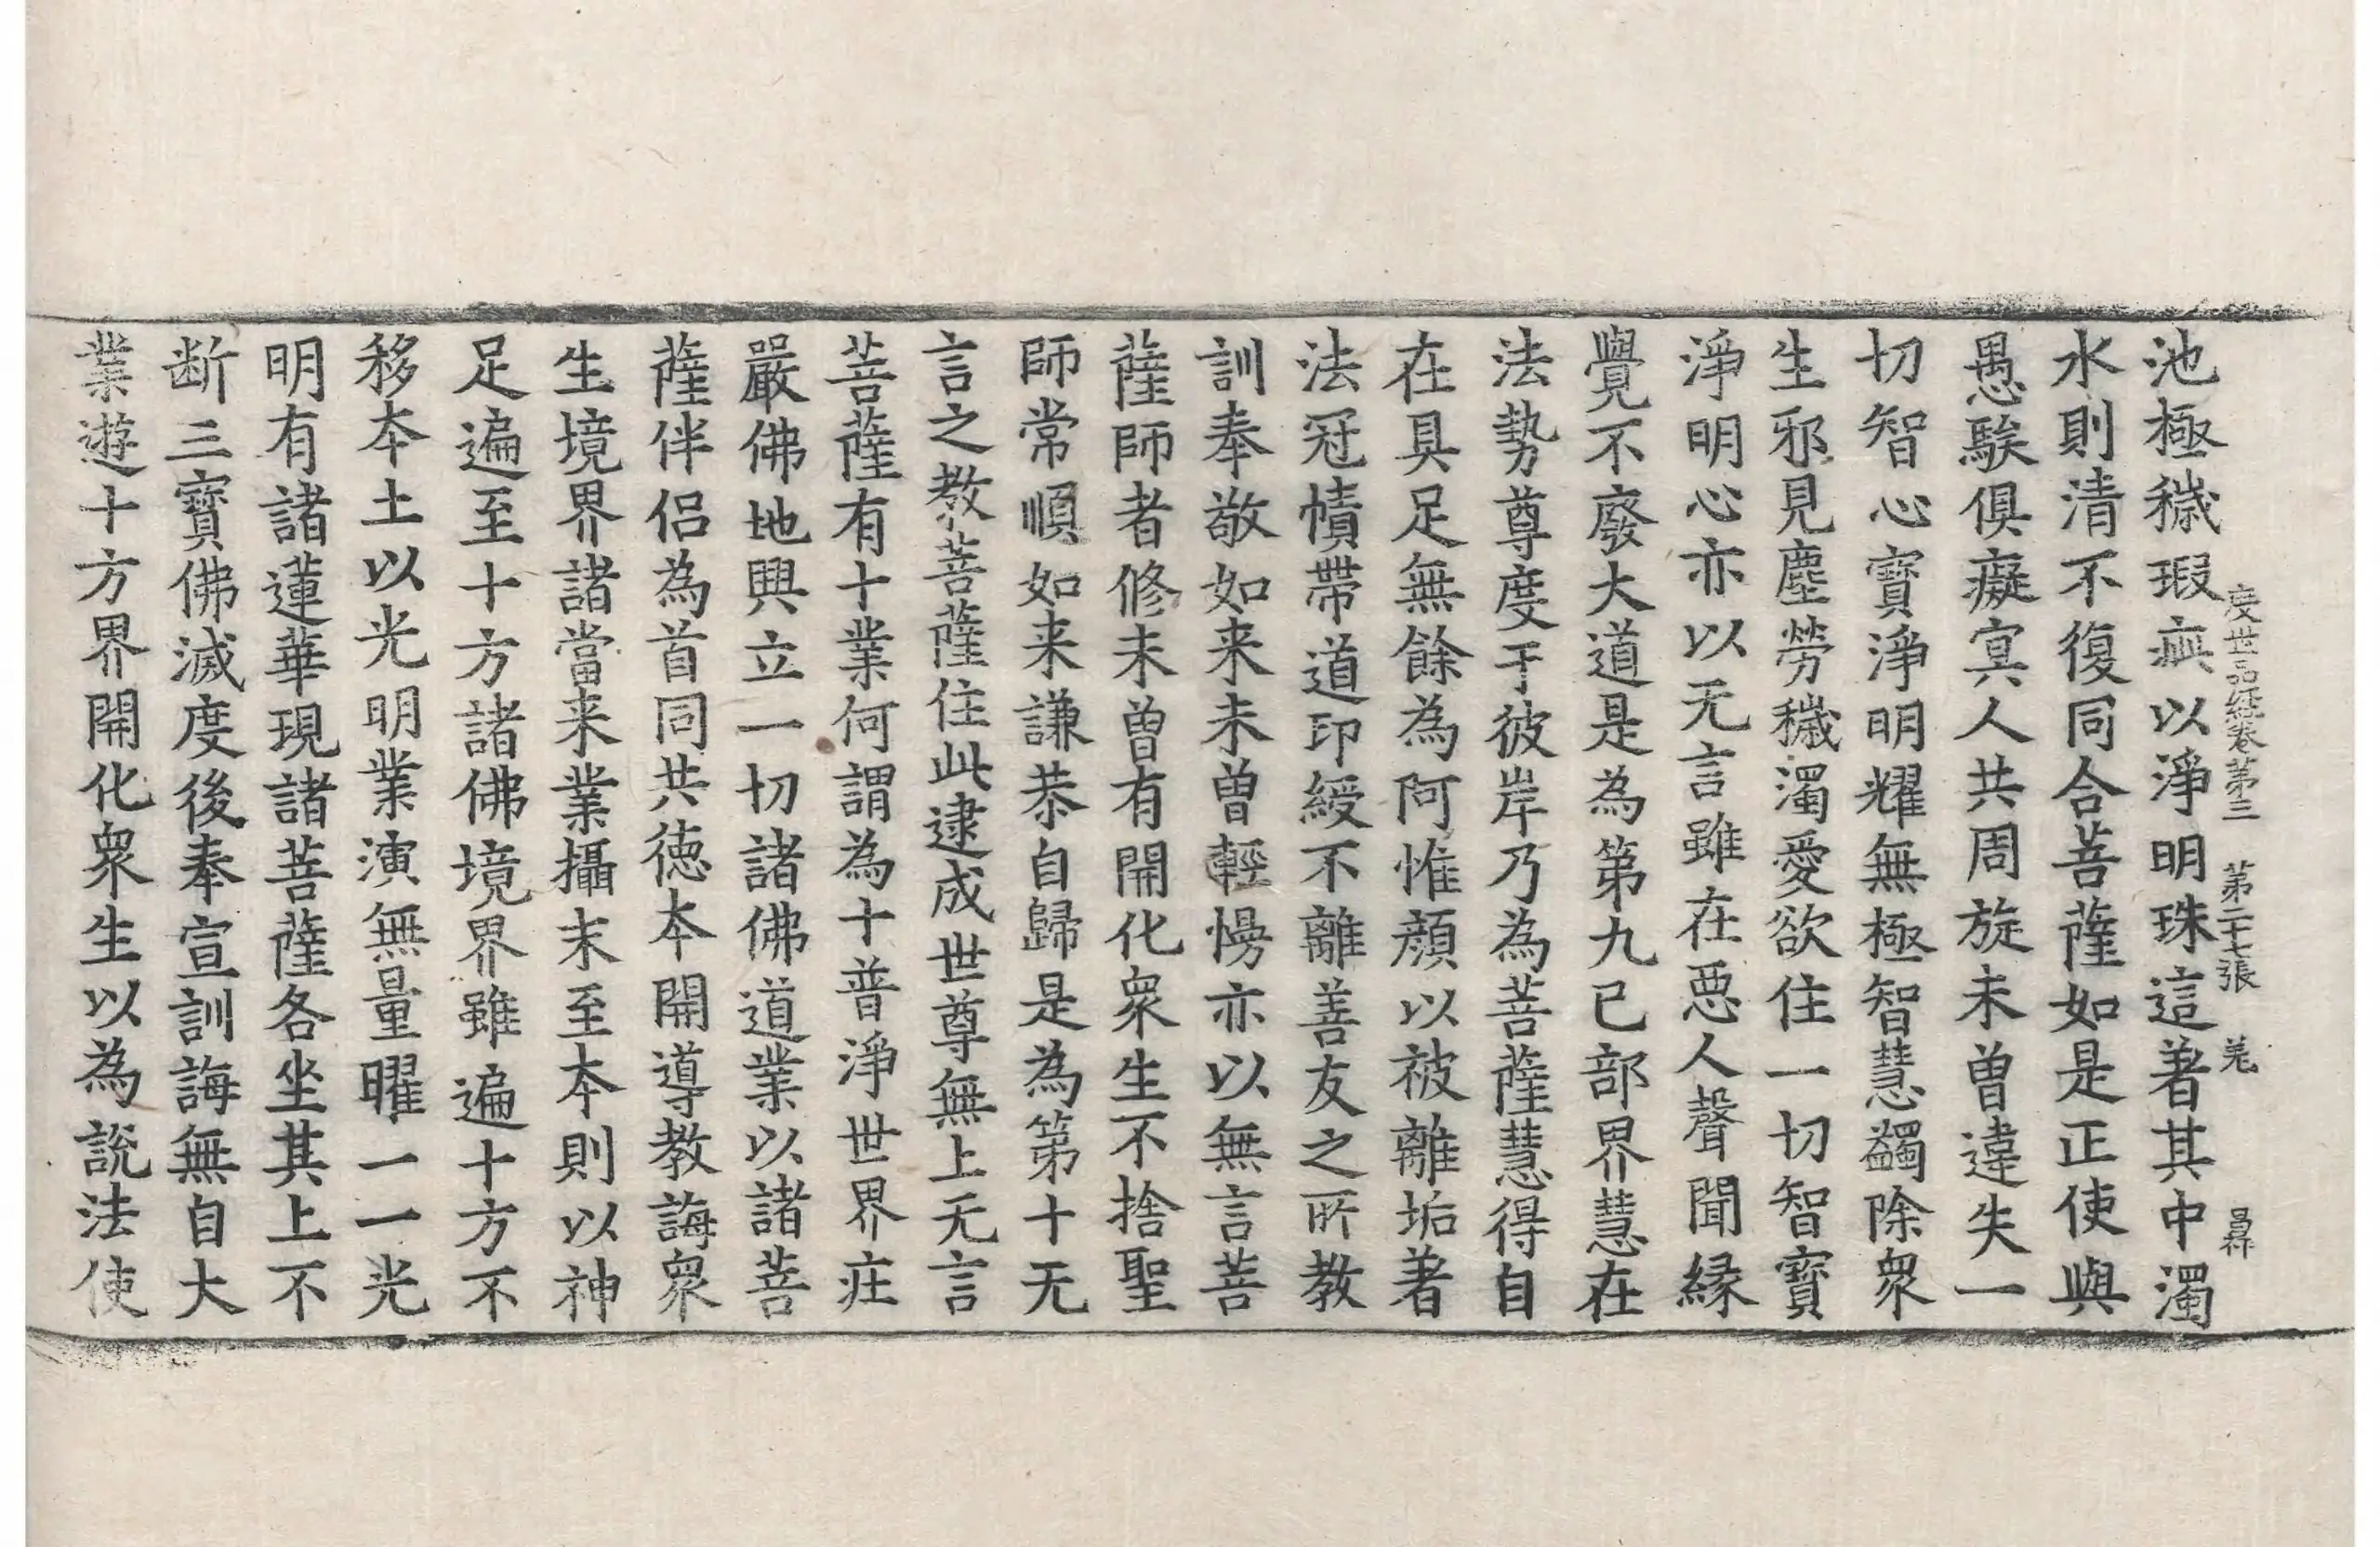 度世品經卷第三 第二十七張 羌 昇
池極穢瑕疵以淨明珠這著其中濁
水則清不復同合菩薩如是正使與
愚騃俱癡冥人共周旋未曽違失一
切智心寶淨明耀無極智慧蠲除衆
生邪見塵勞穢濁愛欲住一切智寶
淨明心亦以无言雖在惡人聲聞縁
覺不廢大道是為第九已部界慧在
法勢尊度于彼岸乃為菩薩慧得自
在具足無餘為阿惟顔以被離垢著
法冠幘帶道印綬不離善友之所教
訓奉敬如来未曽輕慢亦以無言菩
薩師者修未曽有開化衆生不捨聖
師常順如来謙恭自歸是為第十无
言之教菩薩住此逮成世尊無上无言
菩薩有十業何謂為十普淨世界莊
嚴佛地興立一切諸佛道業以諸菩
薩伴侶為首同共徳本開導教誨衆
生境界諸當来業攝末至本則以神
足遍至十方諸佛境界雖遍十方不
移本土以光明業演無量曜一一光
明有諸蓮華現諸菩薩各坐其上不
断三寶佛滅度後奉宣訓誨無自大
業遊十方界開化衆生以為説法使